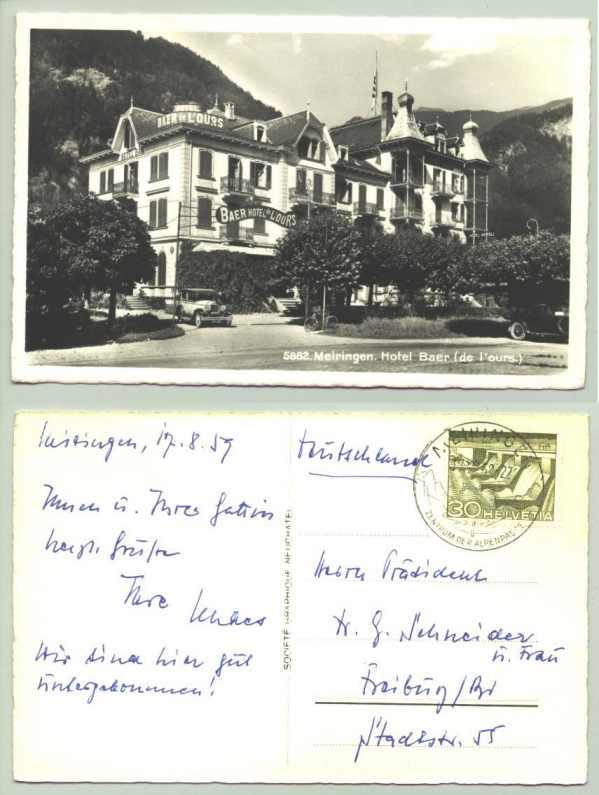 HOTEL
BAER de L'OURS
BAER HOTEL de L'OURS
5862. Meiringen. Hotel Baer (de l'ours.)
Meiringen, 17.8.59
Ihnen u. Ihrer Gattin
herzl. Grüße
Ihre
Wir sind hier gut
untergekommen!
SOCIÉTÉ GRAPHIQUE NEUCHATEL
Deutschland
MEIRINGEN
ZENTRUM DER ALPENPÄSSE
30 HELVETIA
Herrn Präsident
Dr. G. Schneider
u. Frau
Freiburg/Br
Stadtstr. 55